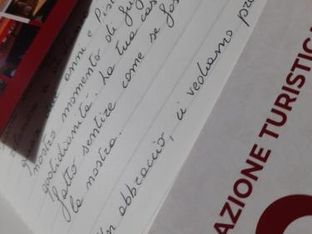 anni e Pis
nostro momento di fug
quotidianità. La tua cas
fatto sentire come se fos
la nostra.
Un abbraccio, ci vediamo pre
AZIONE TURISTIC